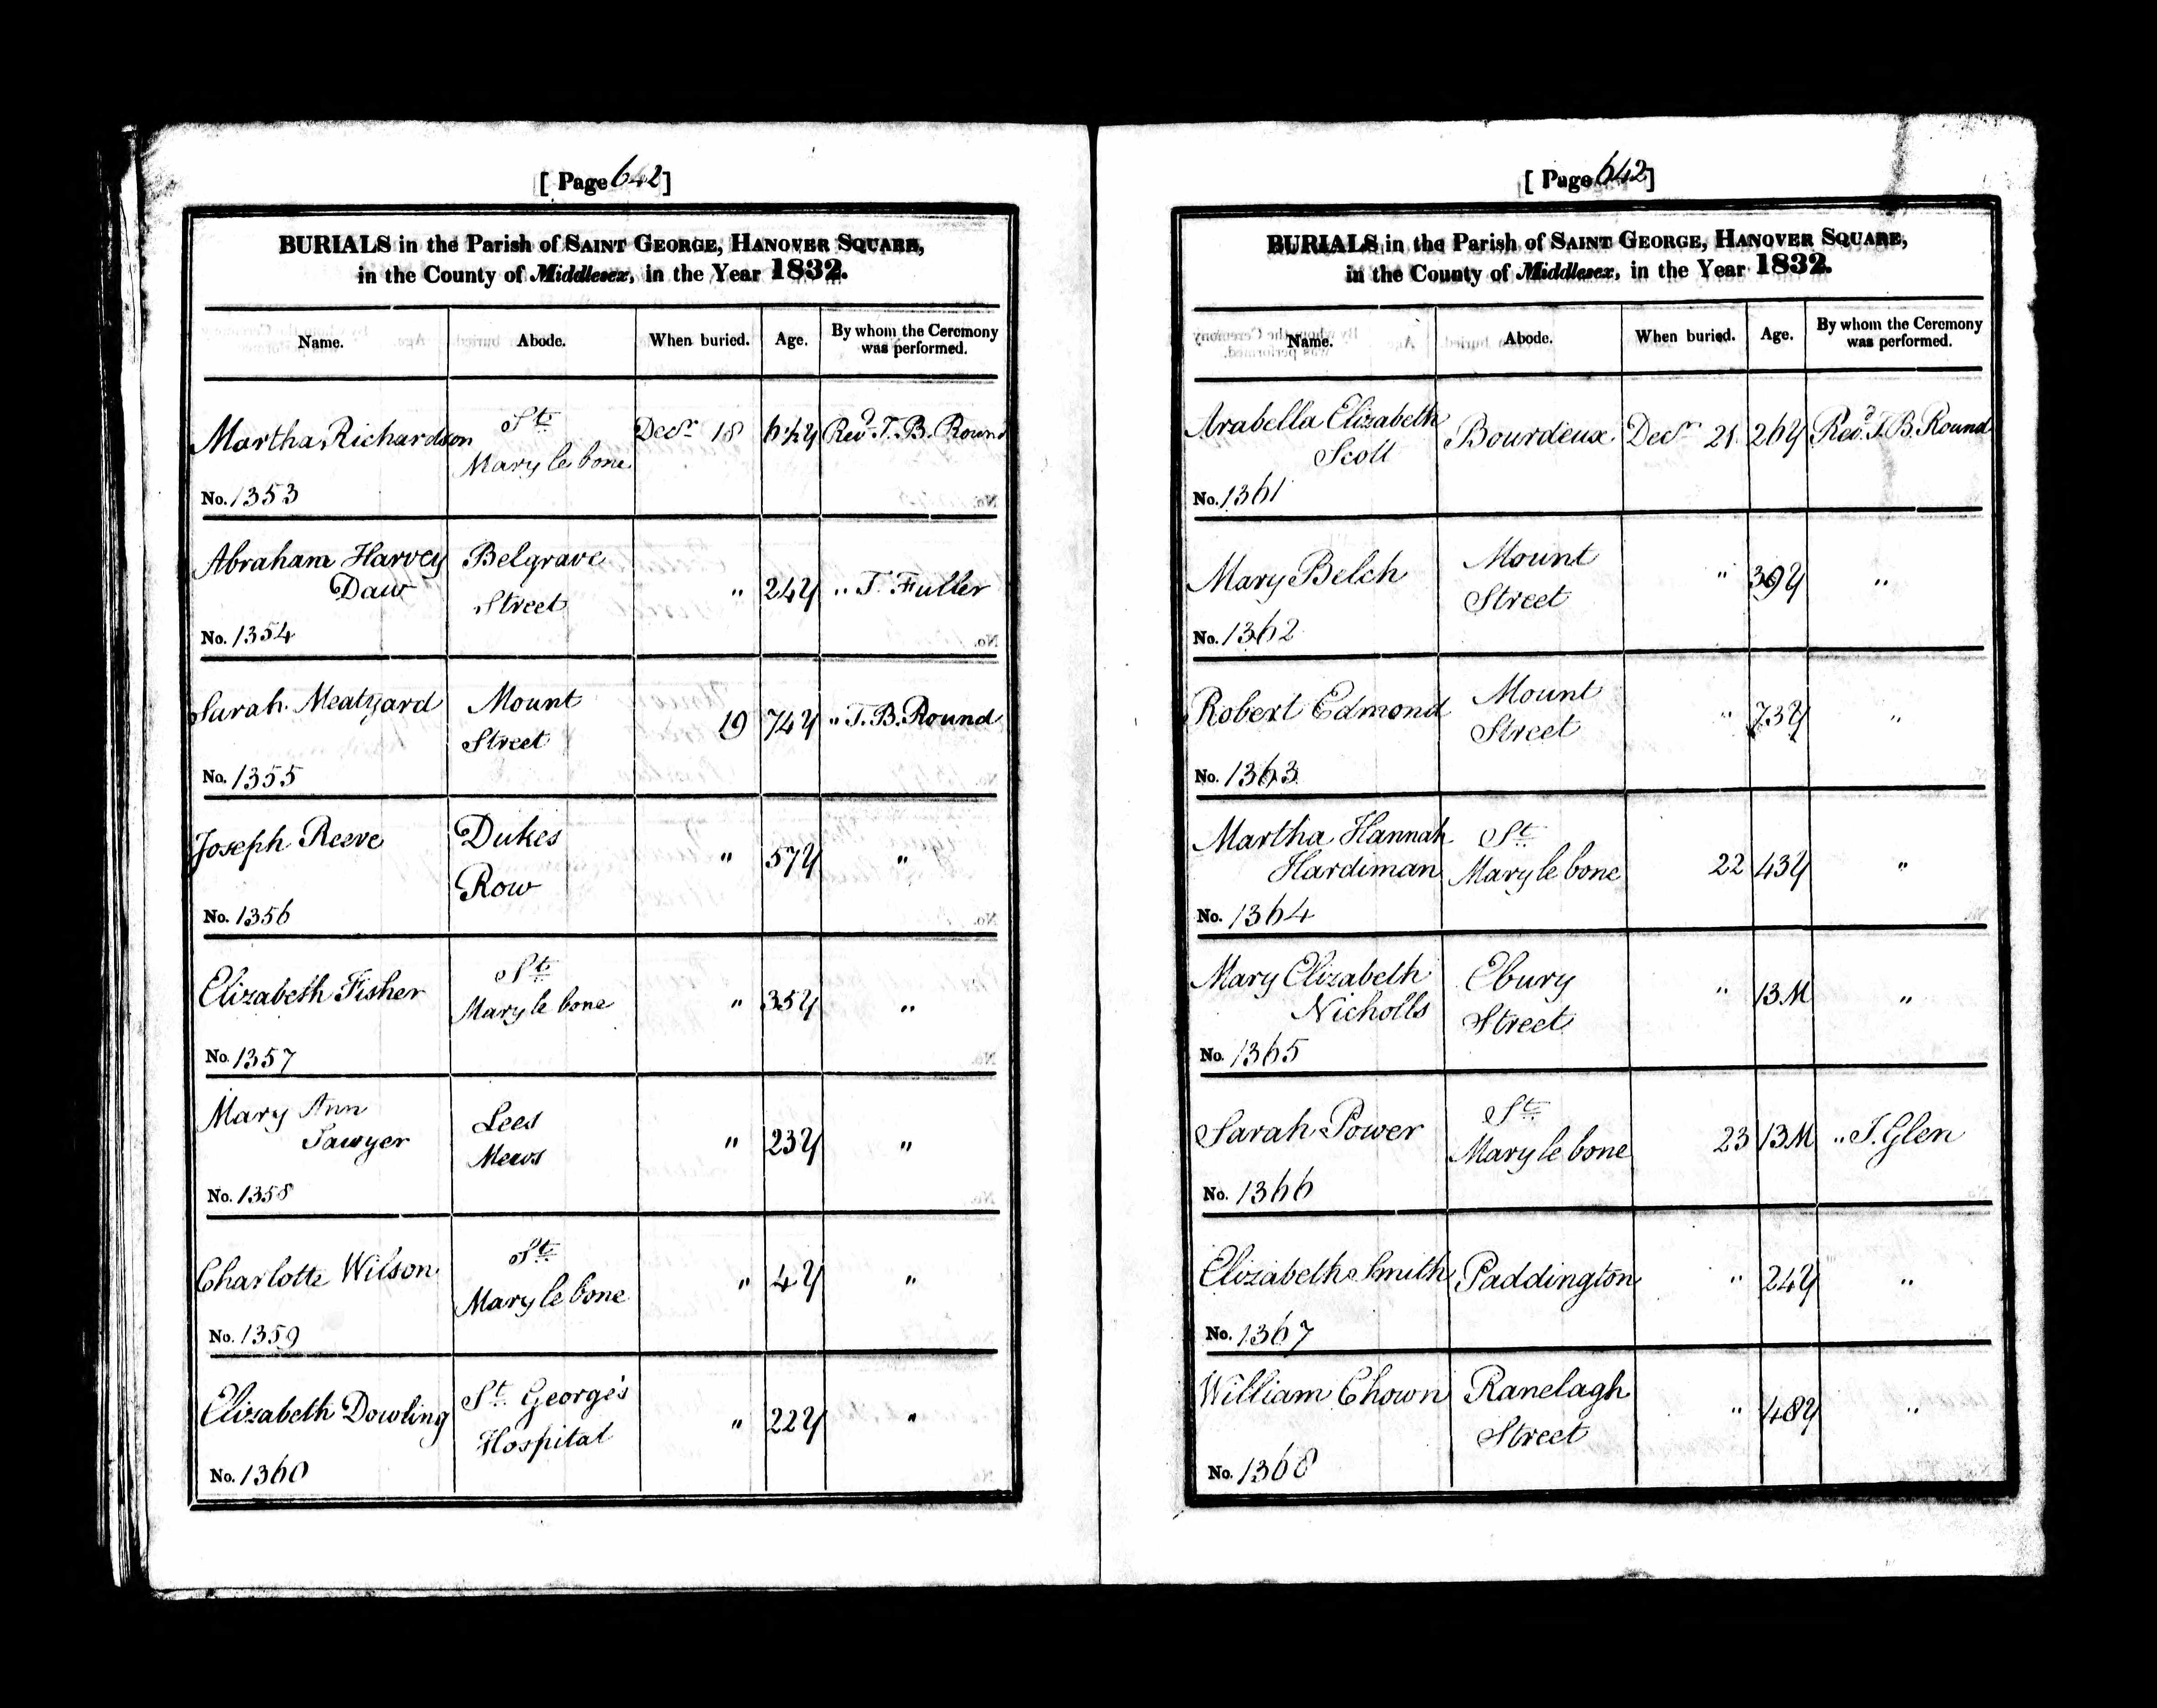 [ Page 642 ]
BURIALS in the Parish of SAINT GEORGE, HANOVER SQUARE,
in the County of Middlesex, in the Year 1832.
Name. Abode. When buried. Age. By whom the Ceremony was performed.
Martha Richardson St. Mary le bone Decr. 18 Revd. T. B. Round
No. 1353
Abraham Harvey Daw Belgrave Street " 24y " T. Fuller
No. 1354
Sarah Meatyard Mount Street 19 74y " T. B. Round
No. 1355
Joseph Reeve Dukes Row " 57y "
No. 1356
Elizabeth Fisher St. Mary le bone " 35y "
No. 1357
Mary Ann Sawyer Lees Mews " 23y "
No. 1358
Charlotte Wilson St. Mary le bone " 4y "
No. 1359
Elizabeth Dowling St. George's Hospital " 22y "
No. 1360
[ Page 642 ]
BURIALS in the Parish of SAINT GEORGE, HANOVER SQUARE,
in the County of Middlesex, in the Year 1832.
Name. Abode. When buried. Age. By whom the Ceremony was performed.
Arabella Elizabeth Scott Bourdeux Decr. 21 26y Revd. T. B. Round
No. 1361
Mary Belch Mount Street " 39y "
No. 1362
Robert Edmond Mount Street " 73y "
No. 1363
Martha Hannah Hardiman St. Mary le bone 22 43y "
No. 1364
Mary Elizabeth Nicholls Ebury Street " 13M "
No. 1365
Sarah Power St. Mary le bone 23 13M " J. Glen
No. 1366
Elizabeth Smith Paddington " 24y "
No. 1367
William Chown Ranelagh Street " 48y "
No. 1368